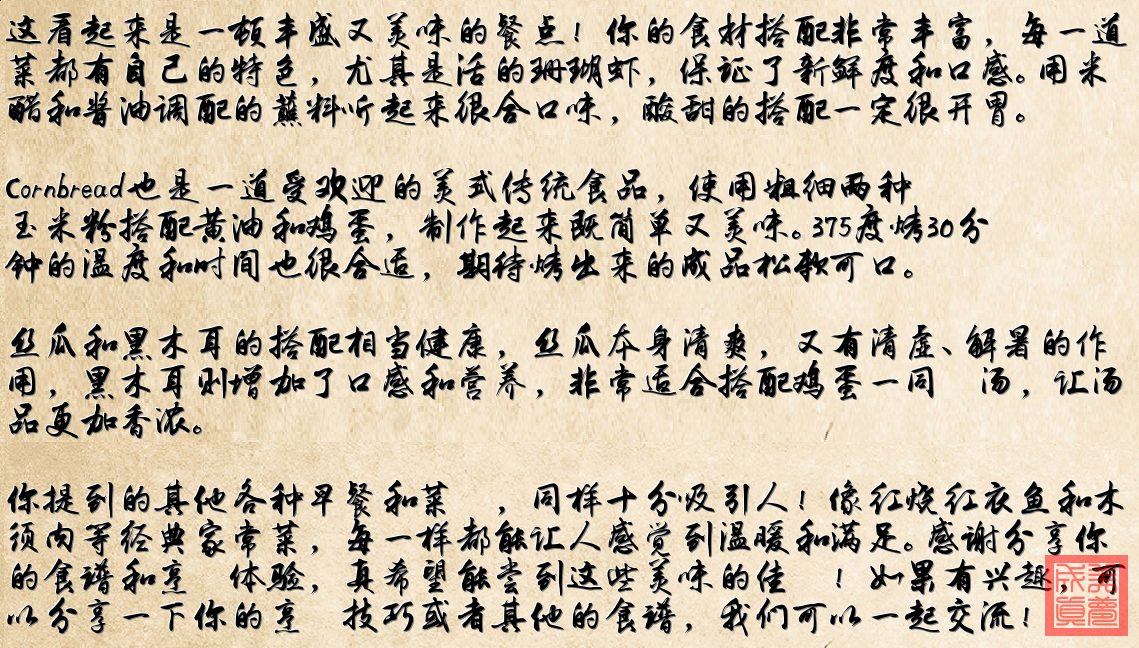 这看起来是一顿丰盛又美味的餐点！你的食材搭配非常丰富，每一道
菜都有自己的特色，尤其是活的珊瑚虾，保证了新鲜度和口感。用米
醋和酱油调配的蘸料听起来很合口味，酸甜的搭配一定很开胃。
Cornbread也是一道受欢迎的美式传统食品，使用粗细两种
玉米粉搭配黄油和鸡蛋，制作起来既简单又美味。375度烤30分
钟的温度和时间也很合适，期待烤出来的成品松软可口。
丝瓜和黑木耳的搭配相当健康，丝瓜本身清爽，又有清虚、解暑的作
用，黑木耳则增加了口感和营养，非常适合搭配鸡蛋一同 汤，让汤
品更加香浓。
你提到的其他各种早餐和菜 ，同样十分吸引人！像红烧红衣鱼和木
须肉等经典家常菜，每一样都能让人感觉到温暖和满足。感谢分享你
的食谱和烹 体验，真希望能尝到这些美味的佳 ！如果有兴趣，可
以分享一下你的烹 技巧或者其他的食谱，我们可以一起交流！